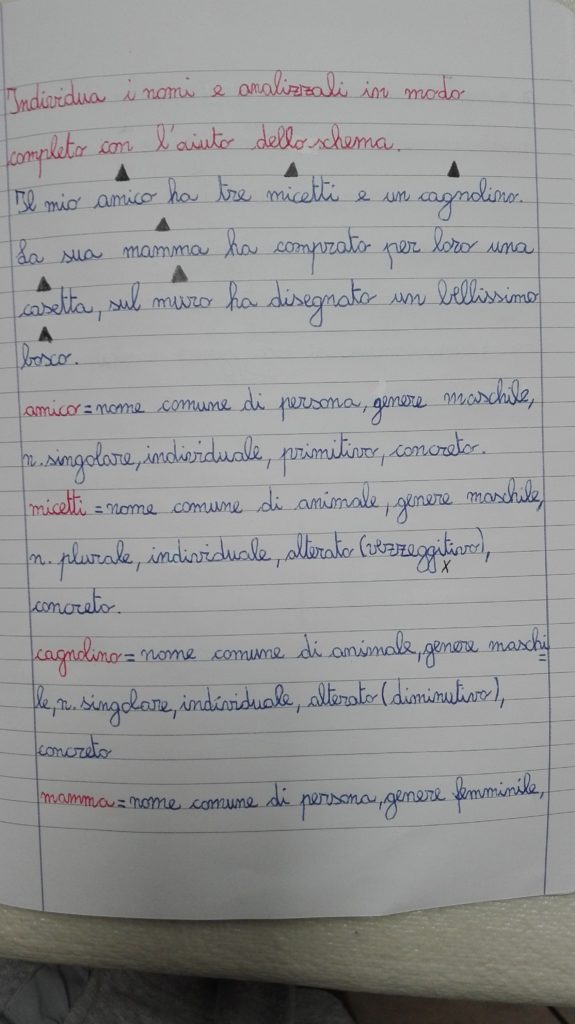 Individua i nomi e analizzali in modo
completo con l'aiuto dello schema.
Il mio amico ha tre micetti e un cagnolino.
La sua mamma ha comprato per loro una
casetta, sul muro ha disegnato un bellissimo
bosco.
amico=nome comune di persona, genere maschile,
n. singolare, individuale, primitivo, concreto.
micetti=nome comune di animale, genere maschile,
n. plurale, individuale, alterato (vezzeggitivo),
x
concreto.
cagnolino=nome comune di animale, genere maschi
le, n. singolare, individuale, alterato (diminutivo),
concreto
mamma=nome comune di persona, genere femminile,